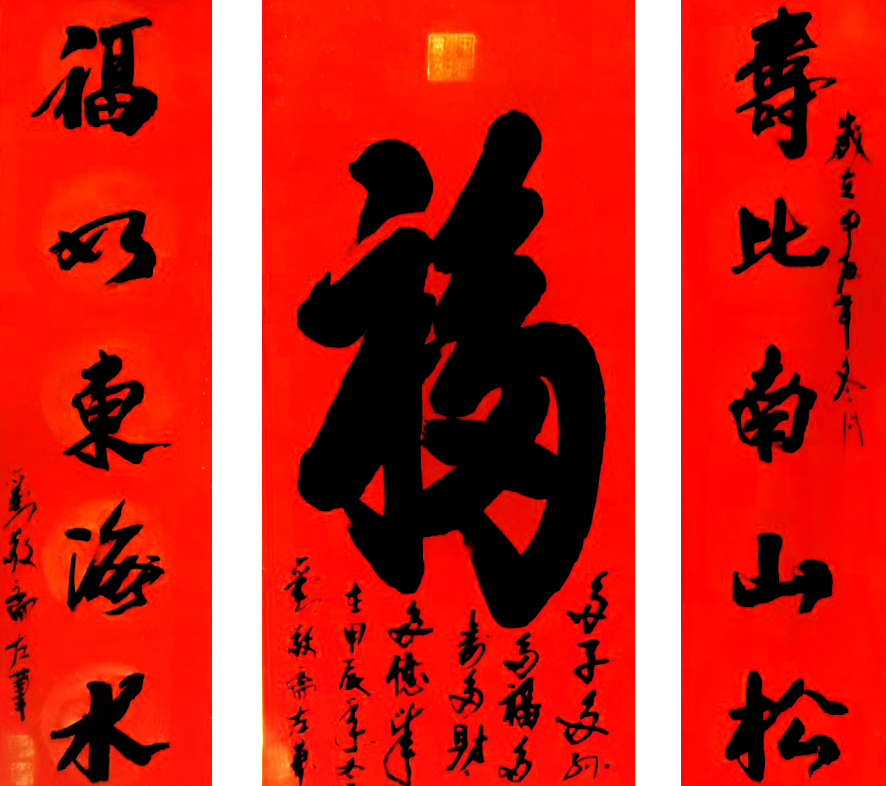 歲在甲辰年冬月
壽比南山松
福
多子多孙
多福多
寿多财
多
在甲辰年冬
劉敬齋左筆
福如東海水
劉敬齋左筆